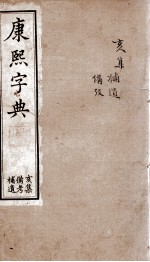 康熙字典
亥集
備考
補遺
亥集補遺
備攷